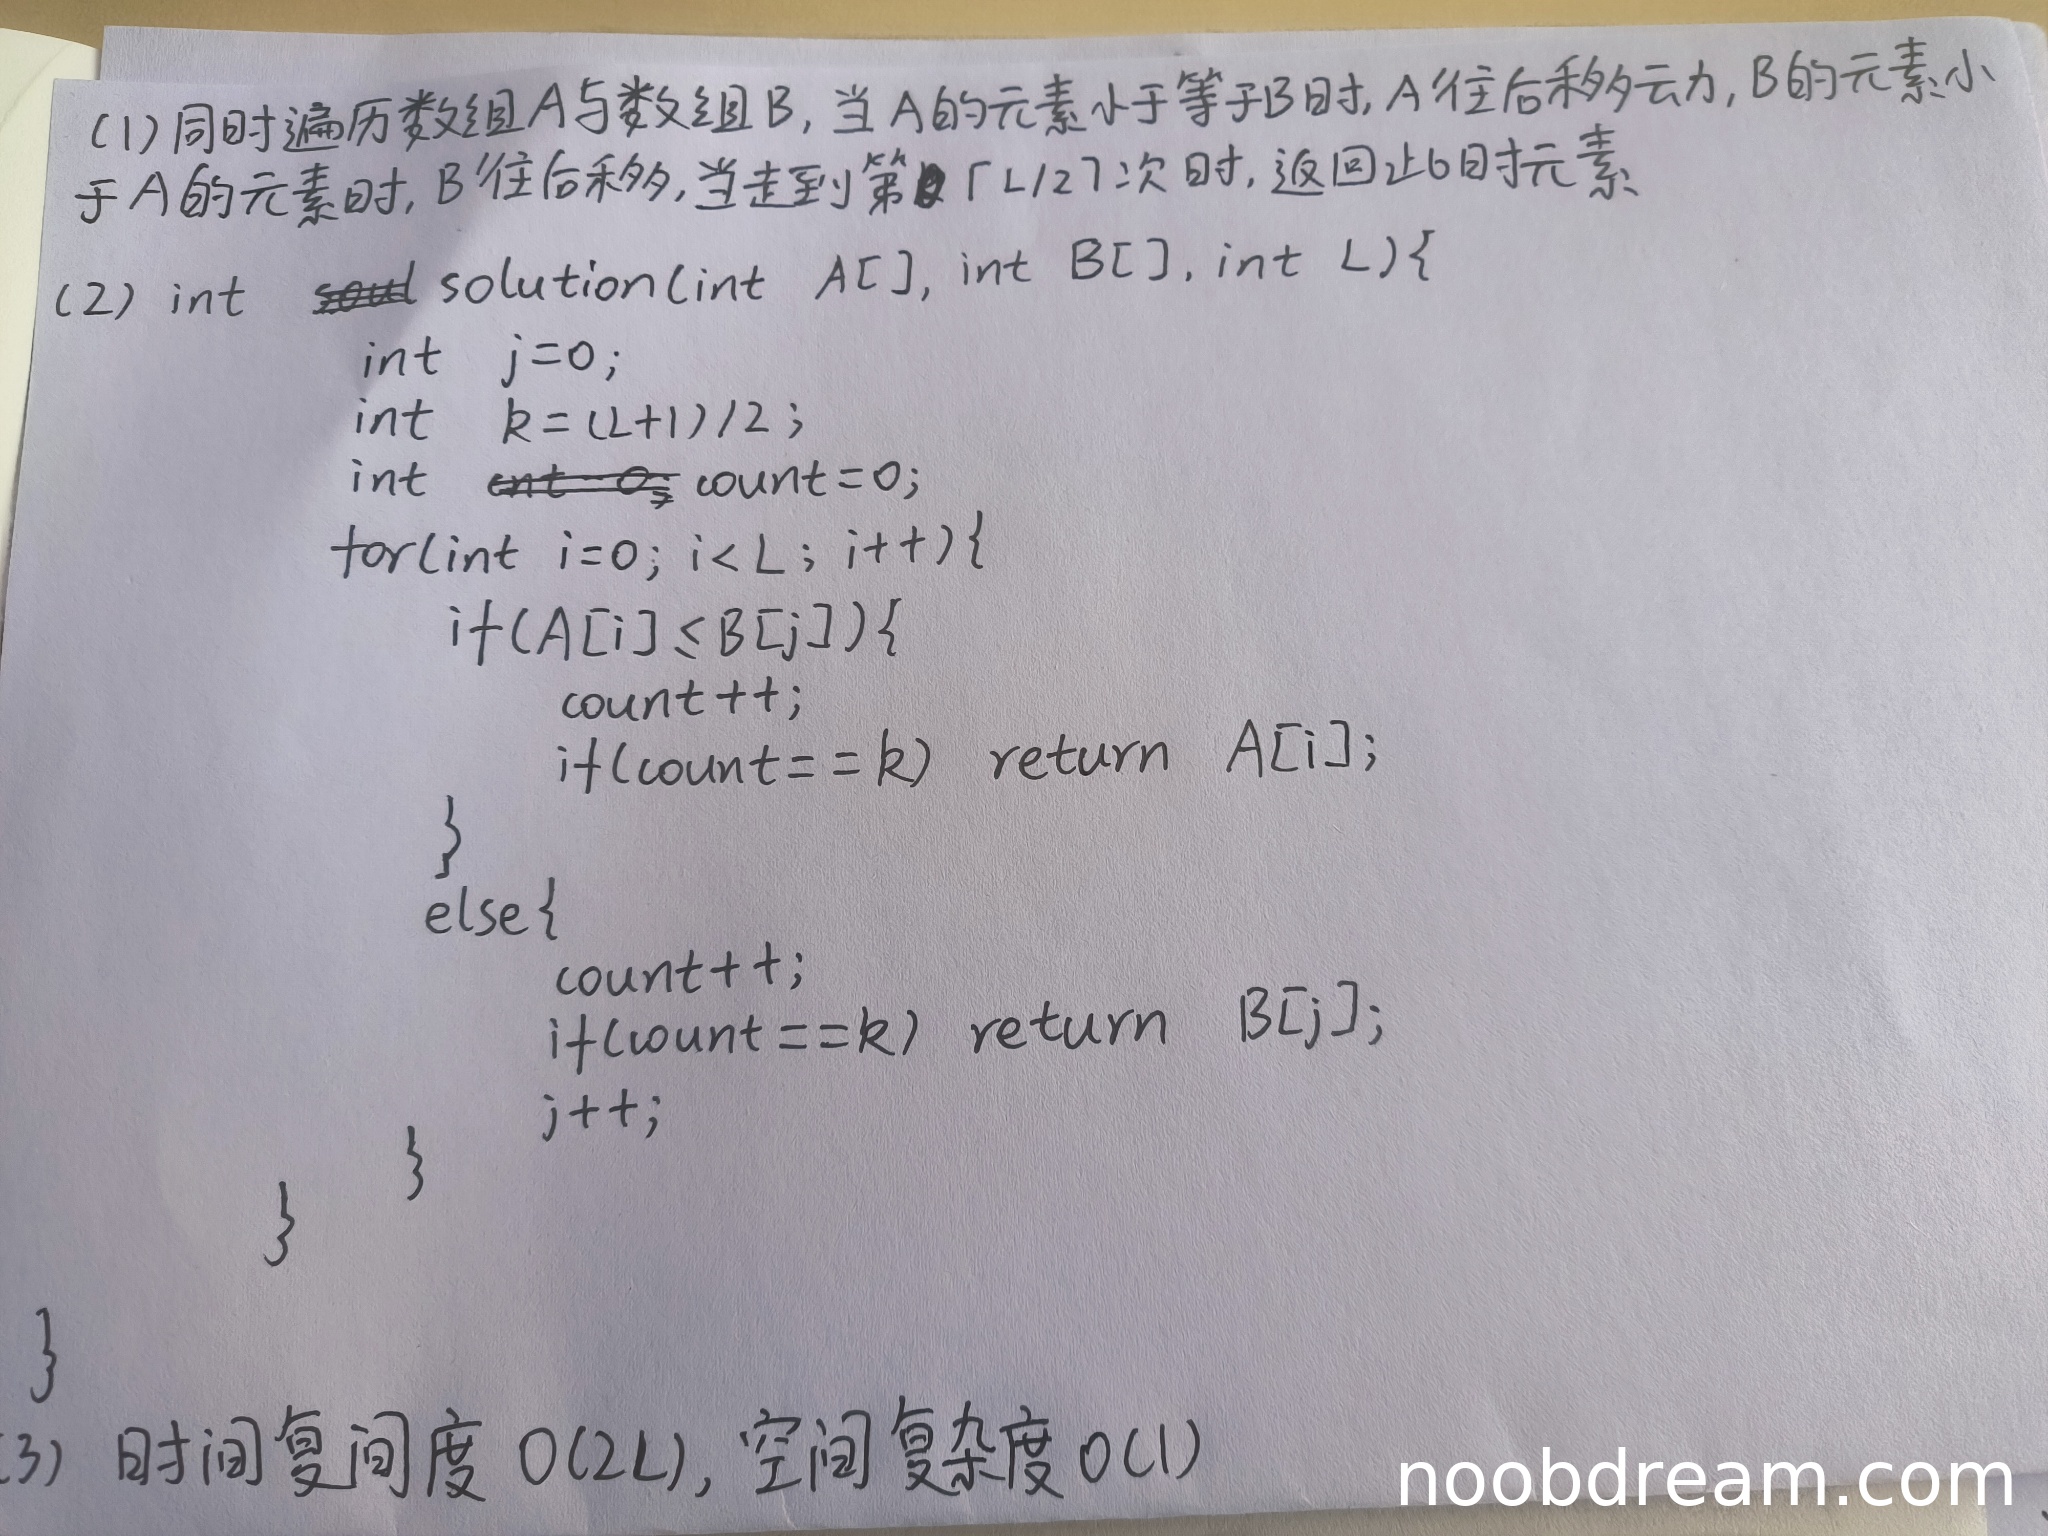 (1)同时遍历数组A与数组B,当A的元素小于等于B时,A往后移动,B的元素小
于A的元素时,B往后移,当走到第⌈L/2⌉次时,返回此时元素
(2) int solution(int A[], int B[], int L){
int j=0;
int k=(L+1)/2;
int count=0;
for(int i=0; i<L; i++){
if(A[i]≤B[j]){
count++;
if(count==k) return A[i];
}
else{
count++;
if(count==k) return B[j];
j++;
}
}
}
(3) 时间复间度 O(2L), 空间复杂度 O(1)
noobdream.com